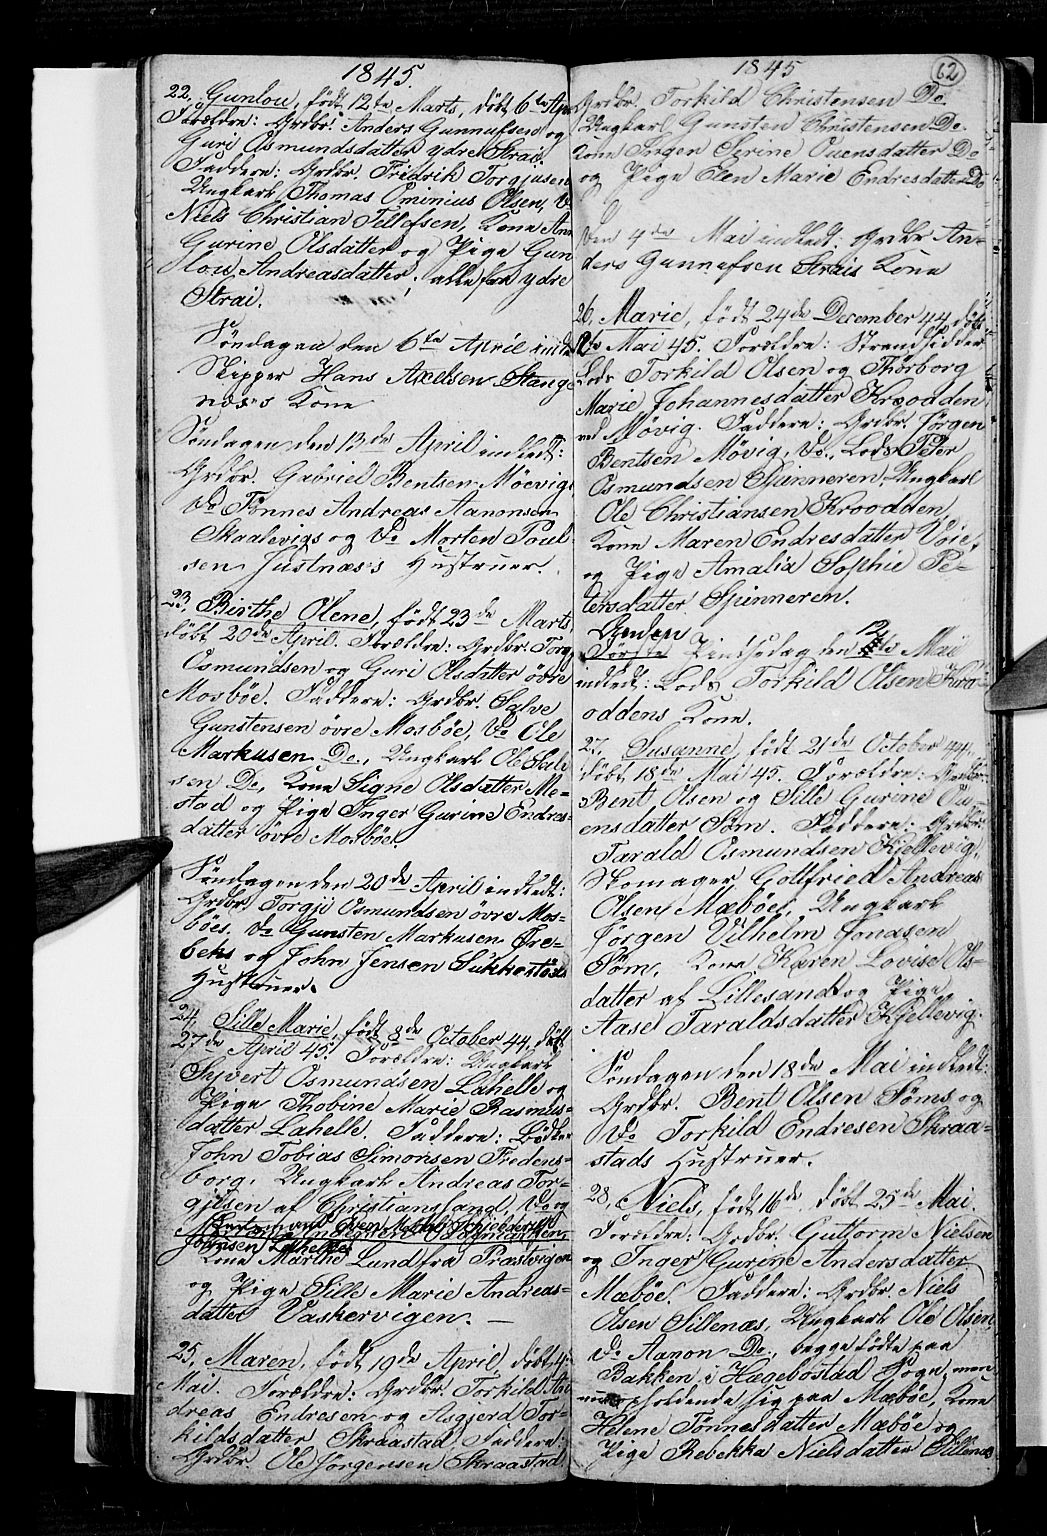 1845.
22, Gunlou, født 12te Marts, døbt 6te Apr
Forældre: Grdbr. Anders Gunnufsen og
Guri Osmundsdatter ydre Strai.
Faddere: Grdbr. Fridrik Torgjusen
Ungkarl Thomas Ominius Olsen, do
Niels Christian Tellefsen, Kone Ane
Gurine Olsdatter og Pige Gun
lou Andreasdatter, alle fra ydre
Strai.
Søndagen den 6te April indle
Skipper Hans Axelsen Stange
næs's Kone
Søndagen den 13de April indledt:
Grdbr. Gabriel Bentsen Møevigs
do Tønnes Andreas Aanonsen
Skaalevigs og do Morten Poul
sen Justnæs's Hustruer.
23, Birthe Olene, født 23de Marts
døbt 20de April. Forældre: Grdbr. Torg
Osmundsen og Guri Olsdatter øvre
Mosbøe. Faddere: Grdbr. Salve
Gunstensen øvre Mosbøe, do Ole
Markusen Do, Ungkarl Ole Salve
sen Do, Kone Signe Olsdatter Mo-
stad og Pige Inger Gurine Endres-
datter øvre Mosbøe.
Søndagen den 20de April indledt:
Grdbr. Torgju Osmundsen øvre Mos-
bøes. do Gunsten Markusen Øre-
beks og John Jensen Sukkestøes
Hustruer.
24, Sille Marie, født 8de October 44, døbt
27de April 45. Forældre: Ungkarl
Syvert Osmundsen Lahelle og
Pige Thobine Marie Rasmus-
datter Lahelle. Faddere: Bødker
John Tobias Simonsen Fredens-
borg, Ungkarl Andreas Tor-
gjusen af Christianssand, do og
Johnsen Lahelle
Kone Marthe Lund fra Præstvigen
og Pige Sille Marie Andreas-
datter Vaskervigen. —
25, Maren, født 19de April, døbt 4de
Mai. Forældre: Grdbr. Torkild An
dreas Endresen og Asgjerd Tor-
kildsdatter Skraastad. Faddere:
Grdbr. Ole Jørgensen Skraastad
1845
62
Grdbr. Torkild Christensen Do
Ungkarl Gunsten Christensen Do
Kone Inger Serine Ouensdatter Do
og Pige Elen Marie Endresdatter Do
Den 4de Mai indledt: Grdbr An-
ders Gunnufsen Strais Kone
26, Marie, født 24de December 44, døbt
Mai 45 Forældre: Strandsidder
Lods Torkild Olsen og Thorborg
Marie Johannesdatter Kroodden
ved Møvig. Faddere: Grdbr. Jørgen
Bentsen Møvig, do, Lods Peter
Osmundsen Spinneren, Ungkarl
Ole Christiansen Kroodden,
Kone Maren Endresdatter Voie,
og Pige Amalia Sophie Pe-
tersdatter Spinneren.
Anden
Første Pintsedag den 12te Mai
indledt: Lods Torkild Olsen Kro
oddens Kone.
27, Susanne, født 21de October 44,
døbt 18de Mai 45. Forældre: Grdbr.
Bent Olsen og Sille Gurine Ou-
ensdatter Søm. Faddere: Grdbr.
Tarald Osmundsen Kjellevig,
Skomager Gottfried Andreas
Olsen Mæbøe, Ungkarl
Jørgen Vilhelm Jondsen
Søm, Kone Karen Lovise Ols-
datter af Lillesand og Pige
Aase Taraldsdatter Kjellevig.
Søndagen den 18de Mai indledt:
Grdbr. Bent Olsen Søms og
do Torkild Endresen Skraa-
stads Hustruer.
28, Niels, født 16de, døbt 25de Mai.
Forældre: Grdbr. Guttorm Nielsen
og Inger Gurine Andersdatter
Mæbøe. Faddere: Grdbr. Niels
Olsen Sillenæs, Ungkarl Ole Olsen,
do Aanon Do, begge fødte paa
Bakken i Hægebostad Sogn, men
opholdende sig paa Mæbøe, Kone
Helene Tønnesdatter Mæbøe og
Pige Rebekka Nielsdatter Sillenæs